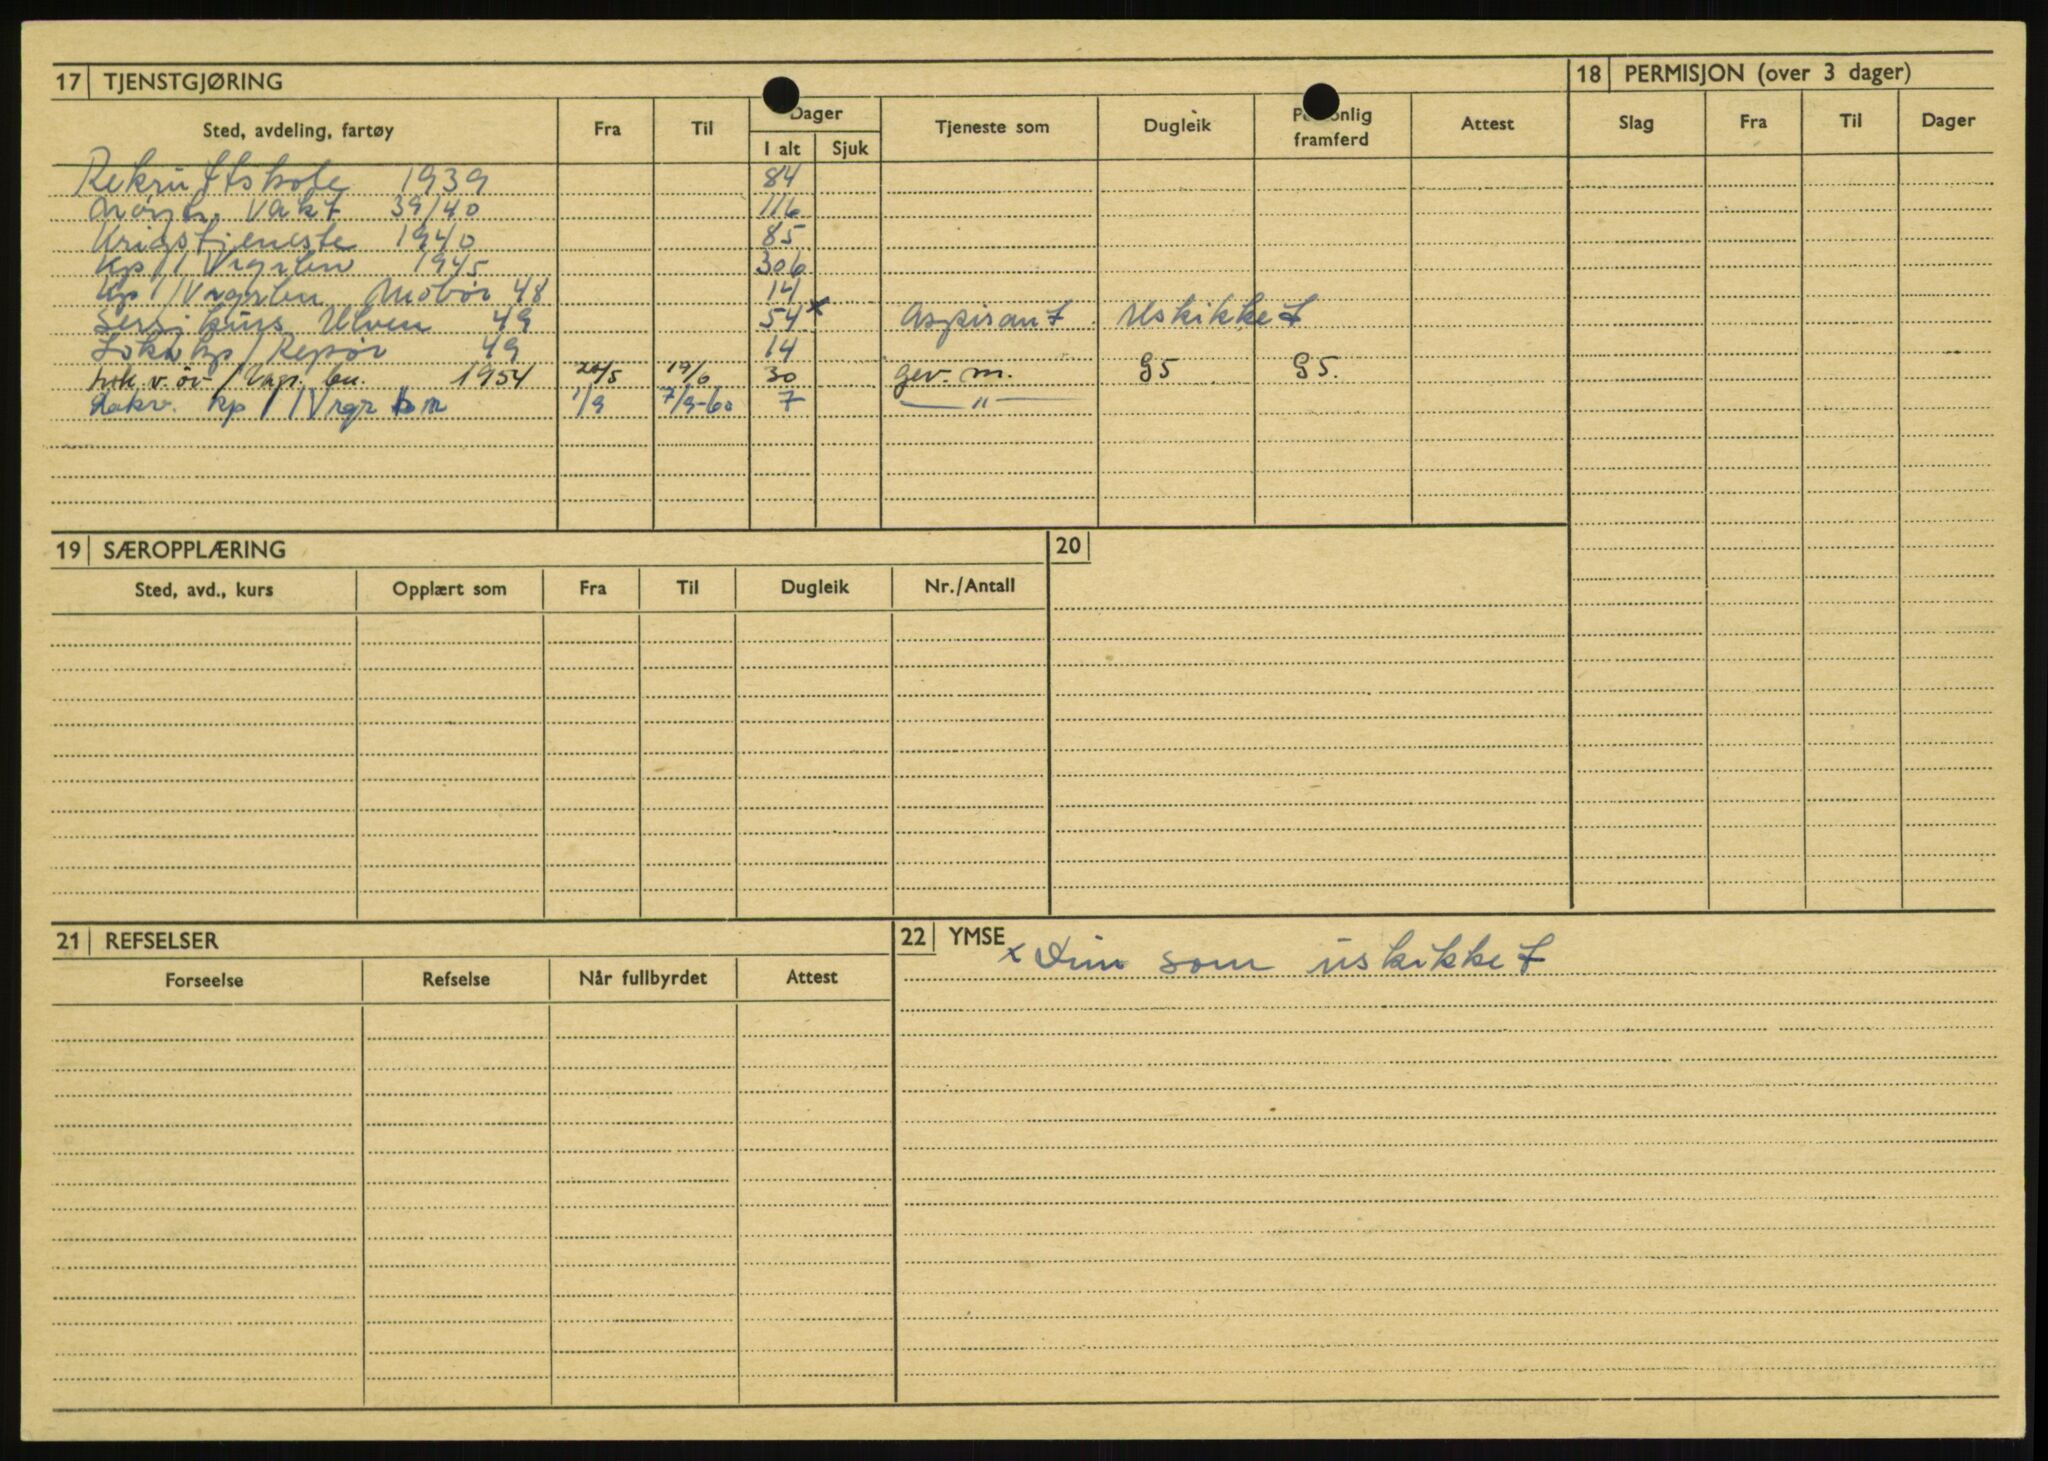 17 TJENSTGJØRING
18 PERMISJON (over 3 dager)
Sted, avdeling, fartøy Fra Til Dager Tjeneste som Dugleik framferd Attest
I alt Sjuk
Slag Fra Til Dager
Rekruttskole 1939 84
Nøytr. vakt 39/40 116
Krigstjeneste 1940 85
Kp / IVrgrbn 1945 306
Kp / IVrgrbn Mobør 48 14
Sersj kurs Ulven 49 54 x Aspirant Uskikket
Lokv kp / Repør 49 14
Lok. v. öv 1954 20/5 19/6 30 Gev. m. G5 G5.
Lokv. kp / IVrgr bn 1/9 7/9-60 7 — " —
19 SÆROPPLÆRING
20
Sted, avd., kurs Opplært som Fra Til Dugleik Nr./Antall
21 REFSELSER
Forseelse Refselse Når fullbyrdet Attest
22 YMSE
x Dim som uskikket